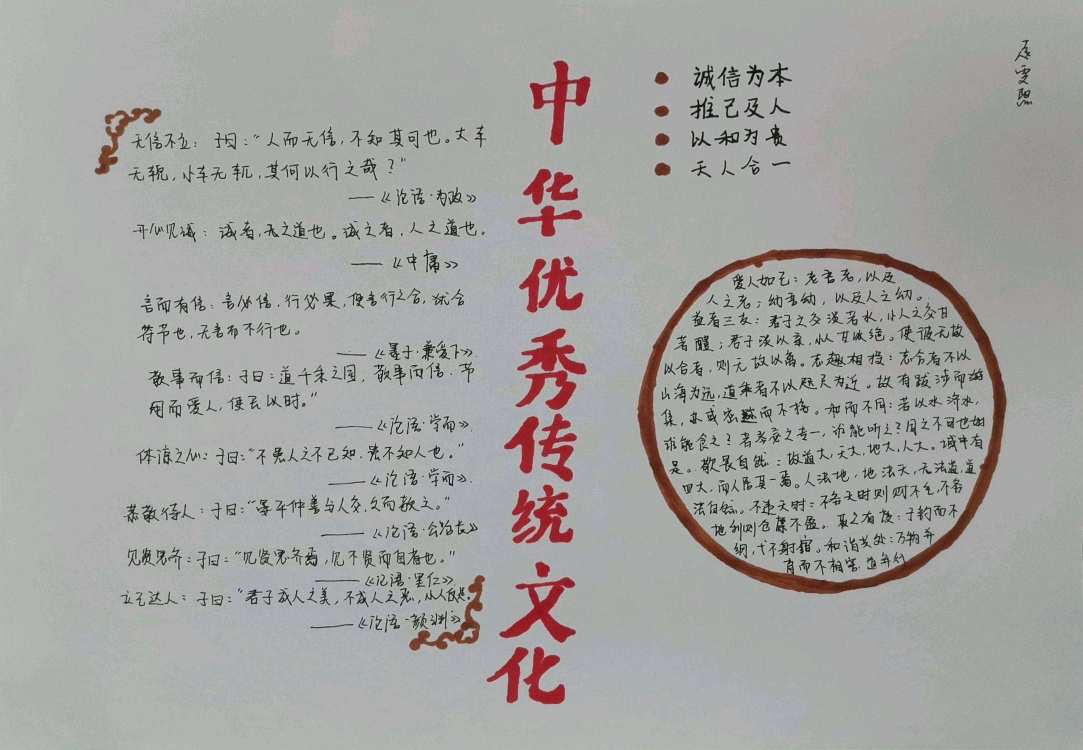 中华优秀传统文化
无信不立：子曰：“人而无信，不知其可也。大车
无輗，小车无軏，其何以行之哉？”
——《论语·为政》
开心见诚：诚者，天之道也。诚之者，人之道也。
——《中庸》
言而有信：言必信，行必果，使言行之合，犹合
符节也，无言而不行也。
——《墨子·兼爱下》
敬事而信：子曰：道千乘之国，敬事而信，节
用而爱人，使民以时。”
——《论语·学而》
体谅之心：子曰：“不患人之不已知，患不知人也。”
——《论语·学而》
恭敬待人：子曰：“晏平仲善与人交，久而敬之。”
——《论语·公冶长》
见贤思齐：子曰：“见贤思齐焉，见不贤而自省也。”
——《论语·里仁》
立己达人：子曰：“君子成人之美，不成人之恶，小人反是。
——《论语·颜渊》
诚信为本
推己及人
以和为贵
天人合一
爱人如己：老吾老，以及
人之老；幼吾幼，以及人之幼。
益者三友：君子之交淡若水，小人之交甘
若醴；君子淡以亲，小人甘以绝。彼无故
以合者，则无故以离。志趣相投：志合者不以
山海为远，道乖者不以咫尺为近。故有跋涉而游
集，亦或密迩而不接。和而不同：若以水济水，
谁能食之？若琴瑟之专一，谁能听之？同之不可也如
是。敬畏自然：故道大，天大，地大，人大。域中有
四大，而人居其一焉。人法地，地法天，天法道，道
法自然。不违天时：不务天时则财不生，不务
地利则仓廪不盈。取之有度：子钓而不
纲，弋不射宿。和谐共处：万物并
育而不相害，道并行